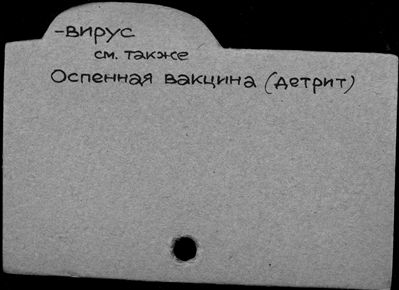 -вирус
см. также
Оспенная вакцина (детрит)